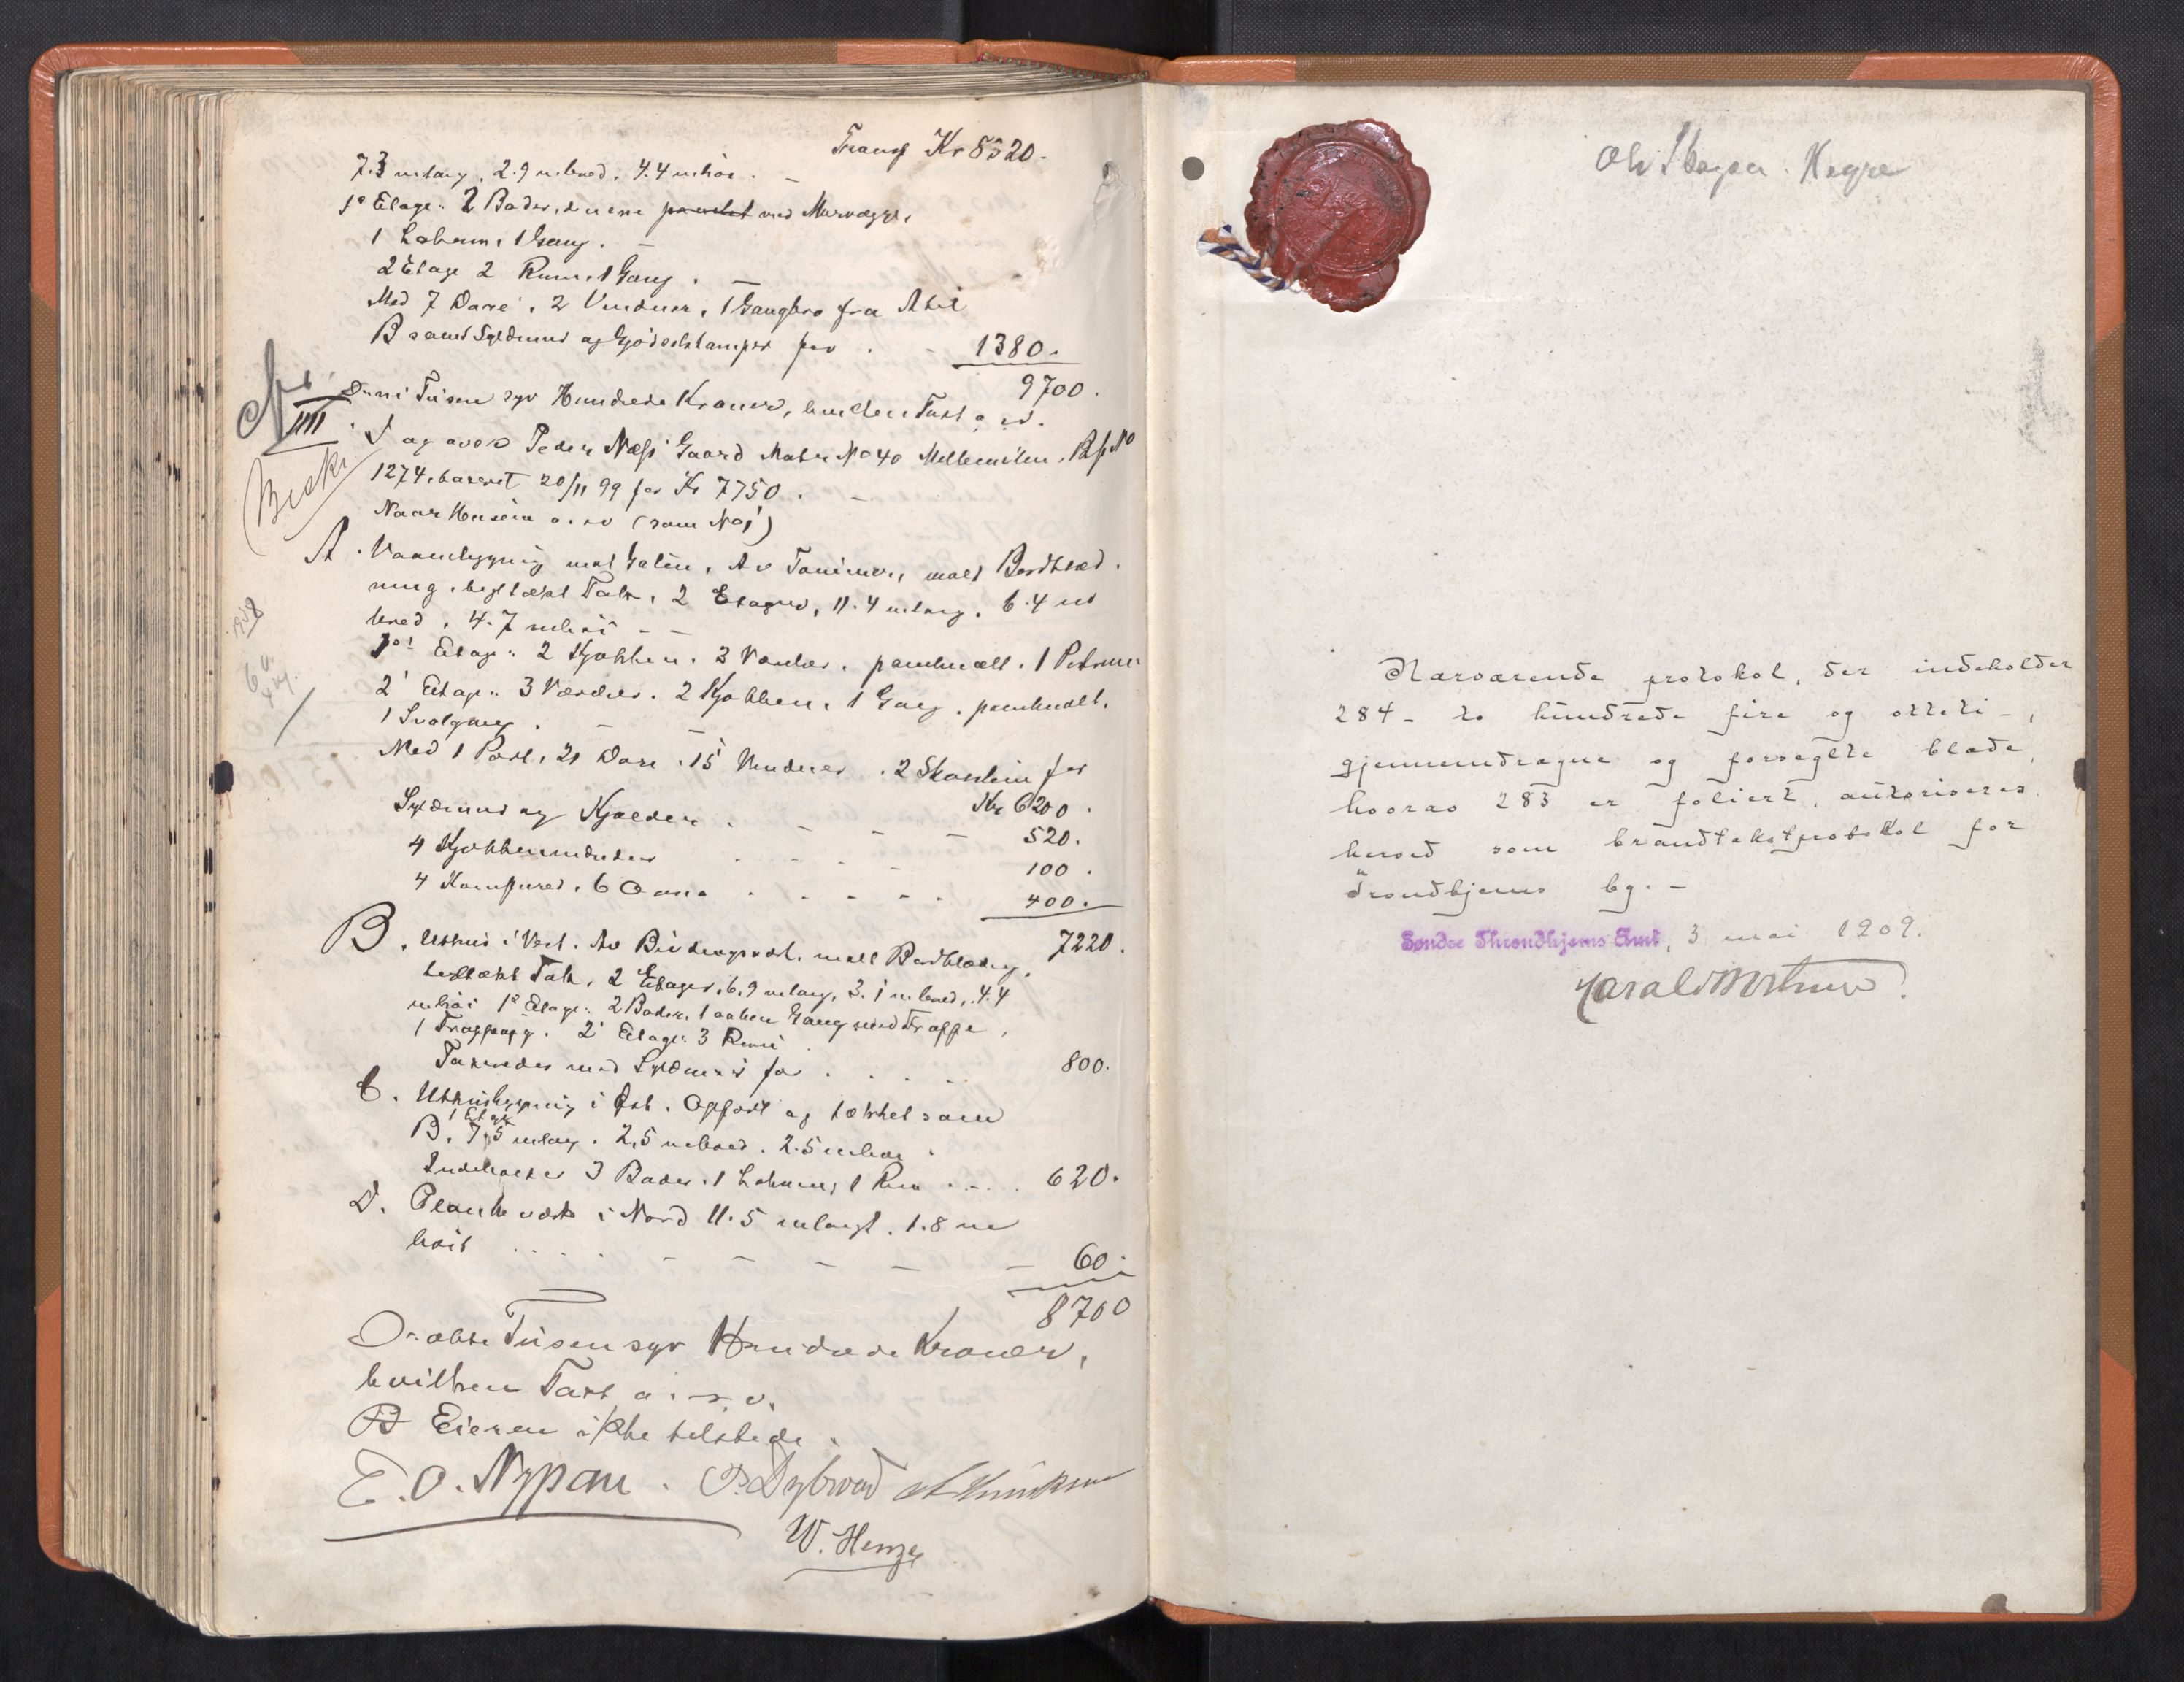 Transp Kr 8320.
7.3 m lang, 2.9 m bred, 4.4 m høi. –
1e Etage: 2 Boder, den ene panelet med Murvægge,
1 Lokum, 1 Gang. –
2 Etage 2 Rum, 1 Gang. –
Med 7 Døre, 2 Vinduer, 1 Gangbro fra A til
B samt Syldmur og Gjødselskamper for . – 1380.
9700.
ni Tusen syv Hundrede Kroner, hvilken Takst o. s. v.
No IIII. Peder Næss Gaard Matr No 40 Mellemilen. Bf No
1274. taxeret 20/11 99 for Kr 7750. –
(Besk.
Naar Huseier o. s. v (som No 1)
A. Vaaningsbygning mot Gaten, Av Tømmer, malt Bordklæd-
ning, tegltækt Tak, 2 Etager, 11.4 m lang, 6.4 m
bred, 4.7 m høi – –
1ste Etage: 2 Kjøkken, 3 Værelser, panelmalt, 1
2' Etage: 3 Værelser. 2 Kjøkken, 1 Gang, panelmalt,
1 Svalgang. –
Med 1 Port, 21 Døre, 15 Vinduer, 2 Skorstein for
Kr 6200.
Syldmur og Kjælder . – – – 520.
4 Kjøkken . . – – 100.
4 Komfurer, 6 Ovne . . – – . 400.
7220.
B. Uthus i Vest. Av Bindingsværk, malt Bordklædning,
tegltækt Tak, 2 Etager, 6.9 m lang, 3.1 m bred, 4.4
m høi 1e Etage: 2 Boder, 1 aaben Gang med Trappe,
1 Trappegg. 2' Etage: 3 Rum
Taxeredes med Syldmur for . . . . 800.
C. Uthusbygning i Øst. Opført og tækket som
1 Etage
B. 7.5 m lang. 2,5 m bred. 2.5 m høi.
Indeholder 3 Boder, 1 Lokum, 1 Rum . . . . 620.
D. Plankeværk i Nord 11.5 m langt. 1.8 m
høit . . . . – – – – – 60.
8700
Er otte Tusen syv Hundrede Kroner,
hvilken Takst o. s. v.
Eieren ikke tilstede.
E. O. Nypan. P. Dybvad
W. Henze
Hegre
Nærværende protokol, der indeholder
284 – to hundrede fire og otteti –,
gjennemdragne og forseglte blade,
hvorav 283 er foliert, autoriseres
herved som brandtakstprotokol for
Trondhjems by. –
Søndre Throndhjems Amt, 3 mai 1909.
Harald